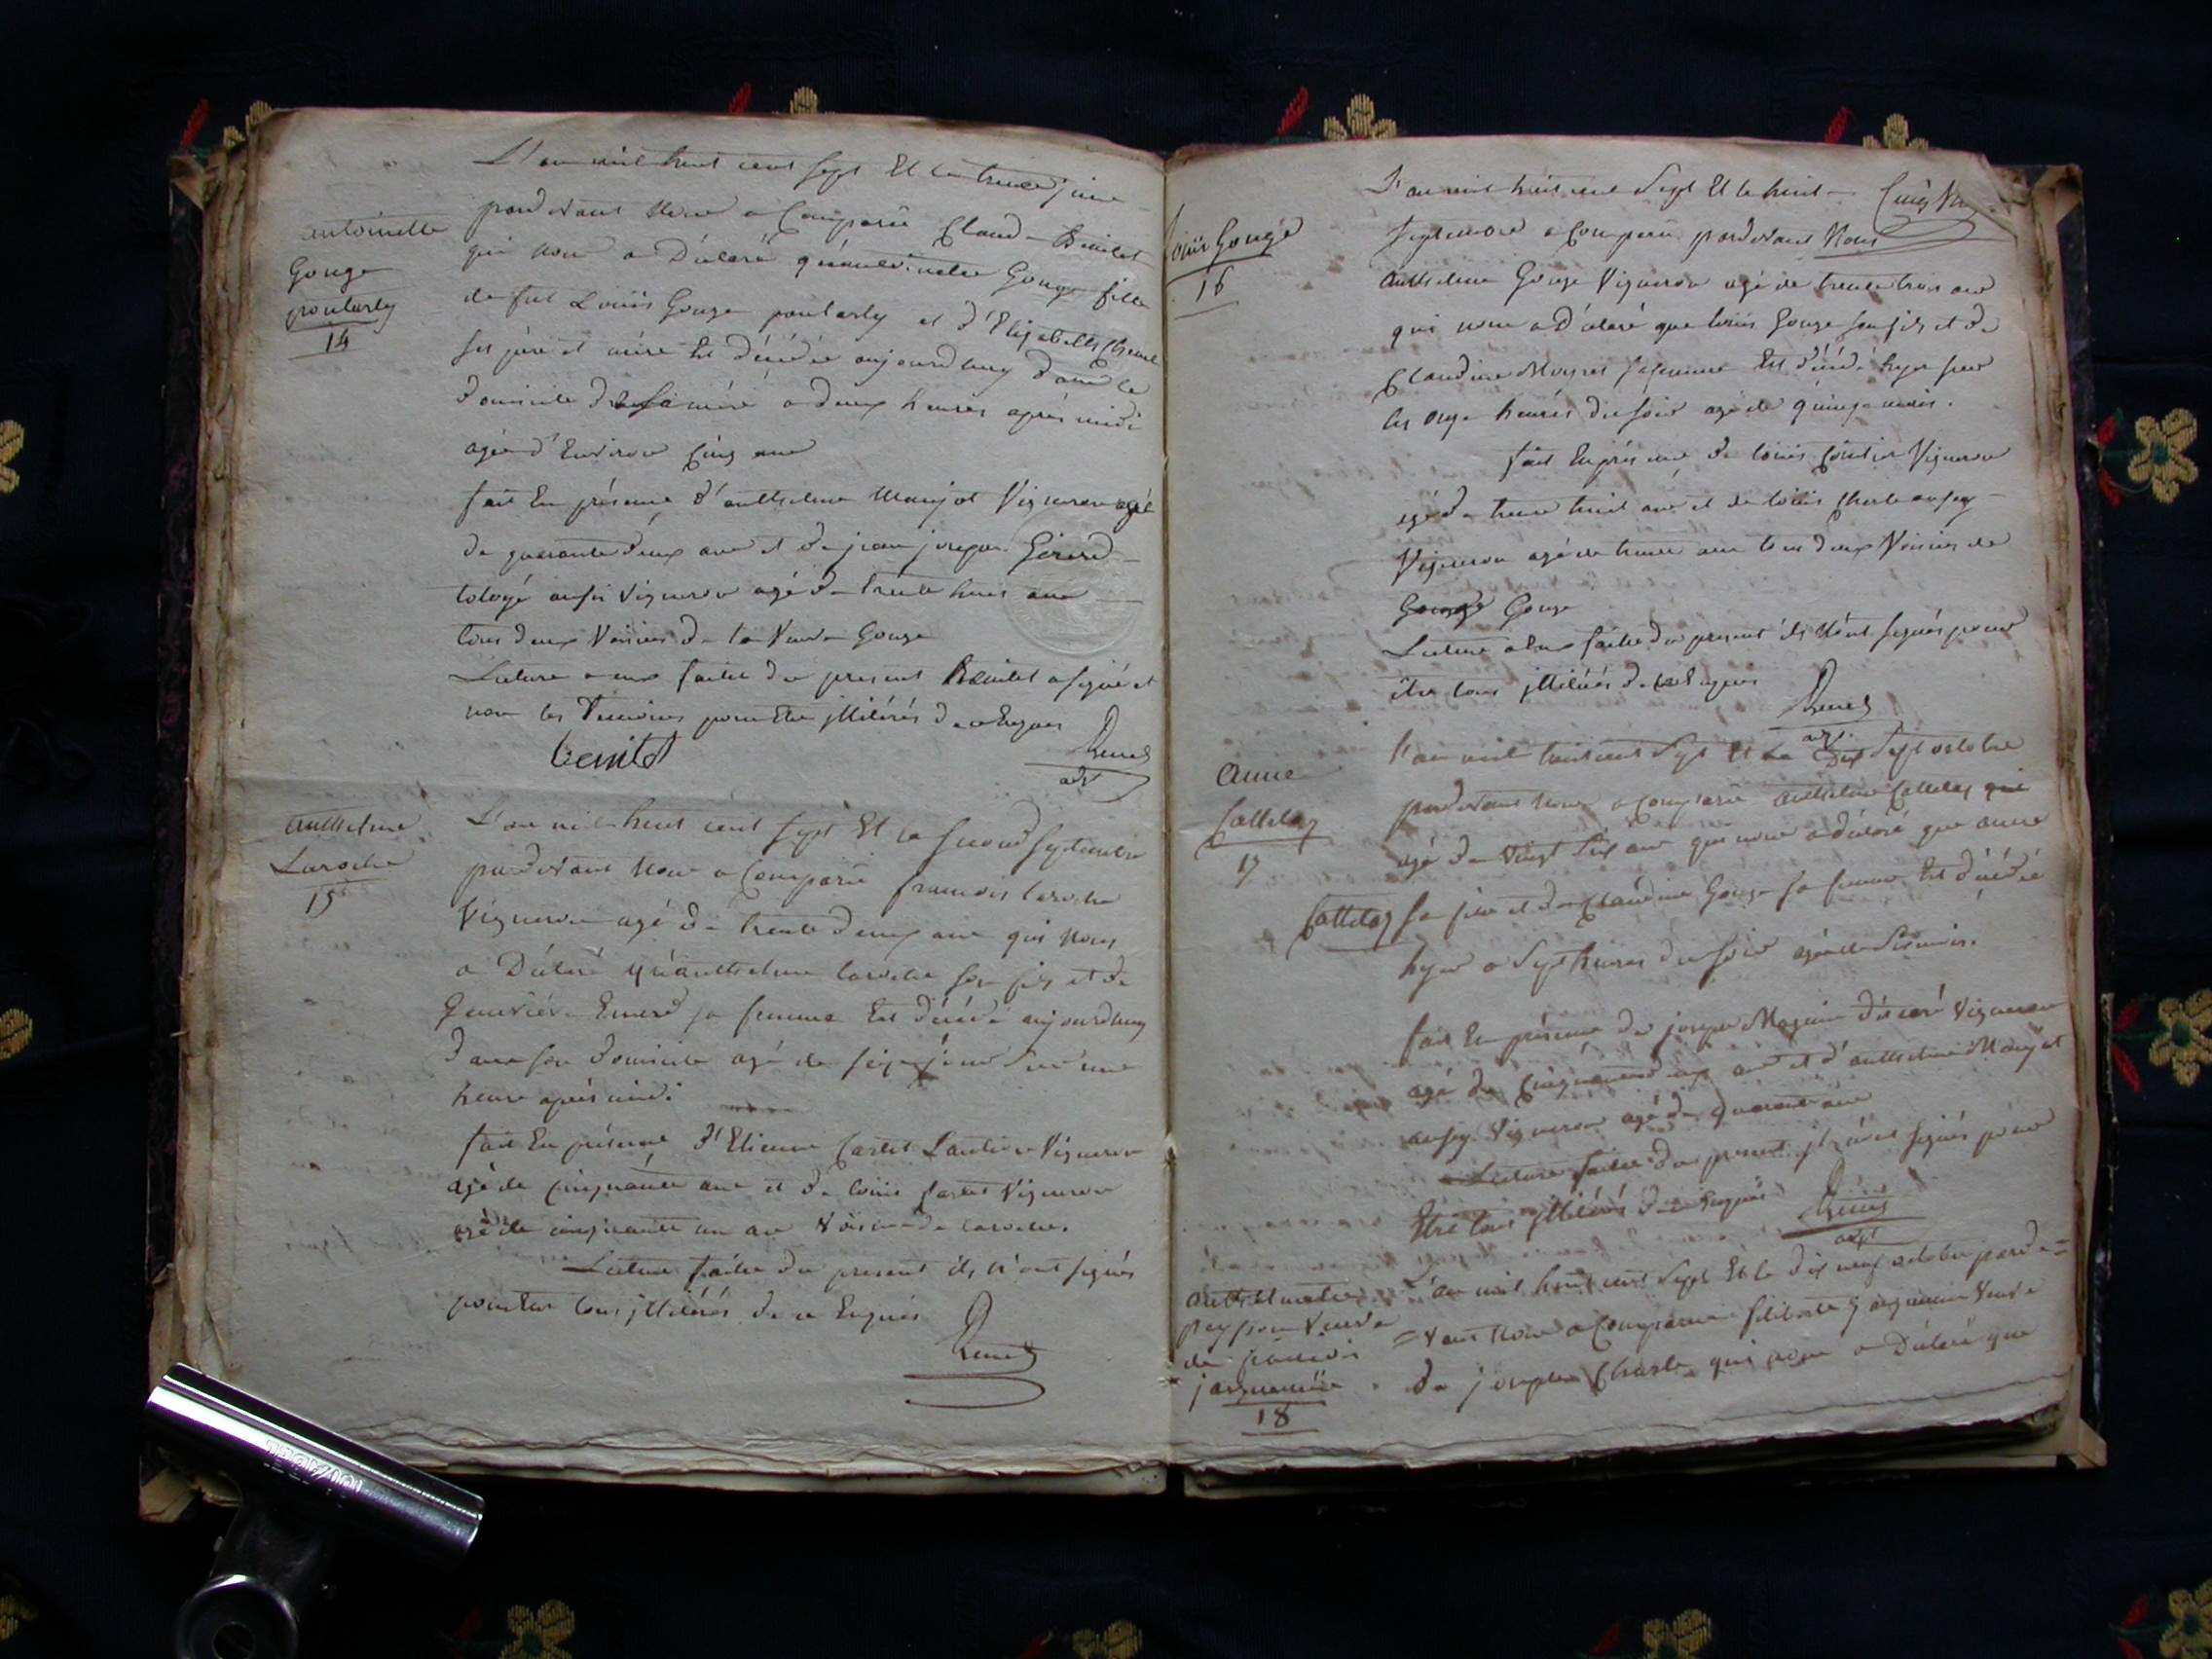 antoinette
Gouge
pontarly
14
L'an mil huit cent sept Et le treize juin
pardevant Nous a Comparu Claude Benitet
qui nous a Déclaré qu'antoinette Gouge fille
de fut Louis Gouge pontarly et d'Elizabeth
ses père et mère Est décédée aujourdhuy dans le
domicile de sa mère a deux heures après midi
agée d'Environ Cinq ans
fait En présence d'anthelme Marjot Vigneron agé
de quarante deux ans et de jean joseph Girerd
aussi Vigneron agé de trente huit ans
tous deux Voisins de la Veuve Gouge
Lecture a eux faite du present Benitet a signé et
non les Temoins pour Etre jllitérés de ce Enquis
benitet
adjt
anthelme
Laroche
15
L'an mil huit cent sept Et le second septembre
pardevant Nous a Comparu francois laroche
Vigneron agé de trente deux ans qui Nous
a Déclaré qu'anthelme laroche son fils et de
Genevieve Emerd sa femme Est décédé aujourdhuy
dans son domicile agé de seize jour sur une
heure après midi
fait En présence d'Etienne Carret Vigneron
agé de cinquante ans et de louis Carret Vigneron
agé de cinquante un an Voisins de laroche.
Lecture faite du present ils n'ont signés
pour Etre tous jllitérés de ce Enquis
Louis Gouge
16
L'an mil huit cent Sept Et le huit
septembre a Comparu pardevant Nous
anthelme Gouge Vigneron agé de trente trois ans
qui nous a Déclaré que louis Gouge son fils et de
Claudine sa femme Est décédé hyer sur
les onze heures du soir agé de quinze mois.
fait En présence de louis Vigneron
agé de trente huit ans et de louis Charle aussy
Vigneron agé de trente ans tous deux Voisins de
Gouge
Lecture a Eux faite du present ils N'ont signés pour
être tous jllitérés de ce Enquis
adjt
anne
Cattelaz
17
L'an mil huit cent Sept Et Le Dix Sept octobre
pardevant Nous a Comparu anthelme Cattelaz
agé de Vingt Six ans qui nous a déclaré que anne
Cattelaz sa fille et de Claudine Gouge sa femme Est décédée
hyer a Sept heures du soir agée de Six mois.
fait En présence de joseph Vigneron
agé de Cinquante deux ans et d'anthelme Marjot
aussy Vigneron agé de quarante ans
Lecture faite du present ils n'ont signés pour
Etre tous jllitérés de ce Enquis
adjt
Veuve
de
18
L'an mil huit cent Sept Et le dix neuf octobre parde=
=vant Nous a Comparu Veuve
de joseph Charle qui nous a Déclaré que